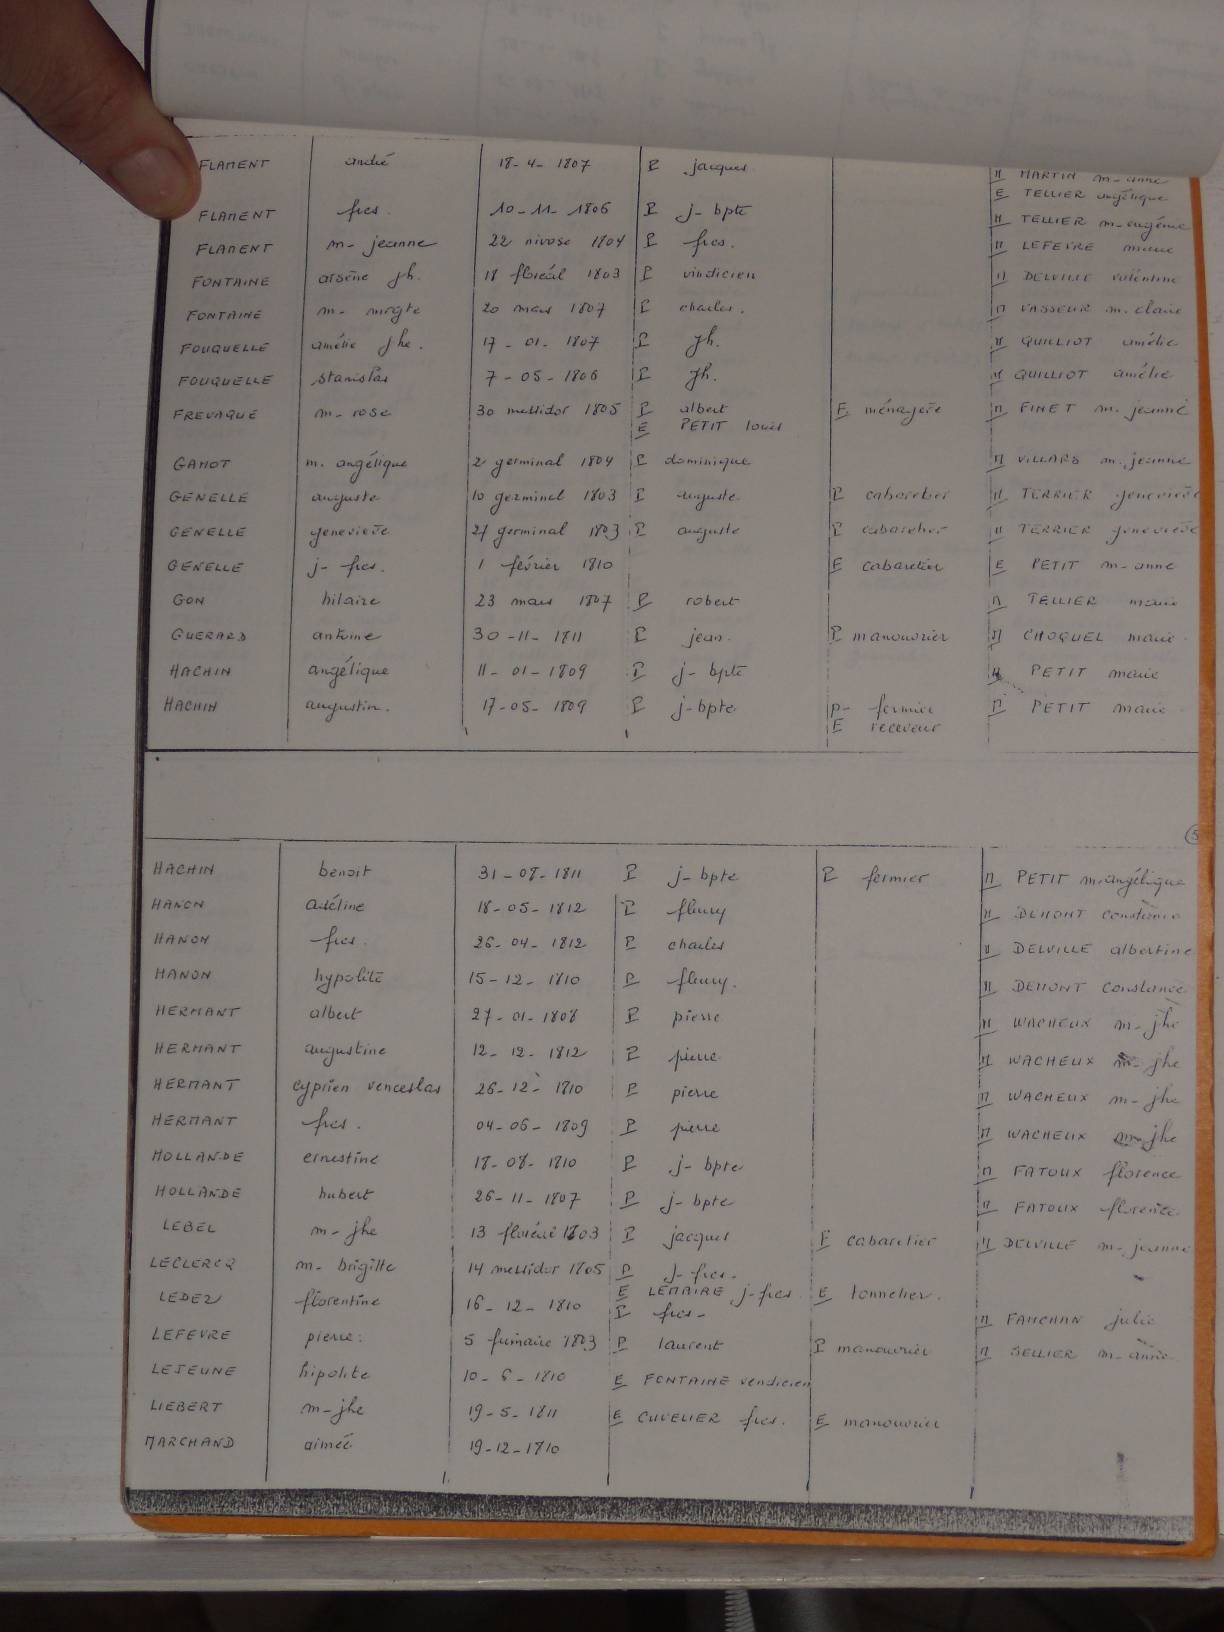 FLAMENT andré 18-4-1807 P jacques M MARTIN m-anne
E TELLIER angélique
FLAMENT fcs. 10-11-1806 P j-bpte M TELLIER m-eugénie
FLAMENT m-jeanne 22 nivose 1804 P fcs. M LEFEVRE marie
FONTAINE arsène jh. 18 floréal 1803 P vindicien M DELVILLE valentine
FONTAINE m-mrgte 20 mars 1807 P charles. M VASSEUR m.claire
FOUQUELLE amélie jhe. 17-01-1807 P jh. M QUILLIOT amélie
FOUQUELLE stanislas 7-05-1806 P jh. M QUILLIOT amélie
FREVAQUE m-rose 30 messidor 1805 P albert E ménagère M FINET m.jeanne
E PETIT louis
GAMOT m.angélique 2 germinal 1804 P dominique M VILLARS m.jeanne
GENELLE auguste 10 germinal 1803 P auguste P cabaretier M TERRIER geneviève
GENELLE geneviève 21 germinal 1803 P auguste P cabaretier M TERRIER geneviève
GENELLE j-fcs. 1 février 1810 E cabaretier E PETIT m-anne
GON hilaire 23 mars 1807 P robert M TELLIER marie
GUERARD antoine 30-11-1811 P jean. P manouvrier M CHOQUEL marie.
HACHIN angélique 11-01-1809 P j-bpte M PETIT marie
HACHIN augustin. 17-05-1809 P j-bpte P- fermier P PETIT marie
E receveur
5
HACHIN benoit 31-08-1811 P j-bpte P fermier M PETIT m.angélique
HANON adéline 18-05-1812 P fleury M DEMONT constance
HANON fcs. 26-04-1812 P charles M DELVILLE albertine
HANON hypolite 15-12-1810 P fleury. M DEMONT constance
HERMANT albert 27-01-1808 P pierre M WACHEUX m-jhe
HERMANT augustine 12-12-1812 P pierre M WACHEUX m-jhe
HERMANT cyprien venceslas 26-12-1810 P pierre M WACHEUX m-jhe
HERMANT fcs. 04-06-1809 P pierre M WACHEUX m-jhe
HOLLANDE ernestine 18-08-1810 P j-bpte M FATOUX florence
HOLLANDE hubert 26-11-1807 P j-bpte M FATOUX florence
LEBEL m-jhe 13 floréal 1803 P jacques P cabaretier M DELVILLE m-jeanne
LECLERCQ m-brigitte 14 messidor 1805 P j-fcs.
E LEMAIRE j-fcs. E tonnelier.
LEDEZ florentine 16-12-1810 P fcs- M FAUCHAN julie
LEFEVRE pierre. 5 frimaire 1803 P laurent P manouvrier M SELLIER m-anne
LEJEUNE hipolite 10-6-1810 E FONTAINE vendicien
LIEBERT m-jhe 19-5-1811 E CUVELIER fcs. E manouvrier
MARCHAND aimée 19-12-1810